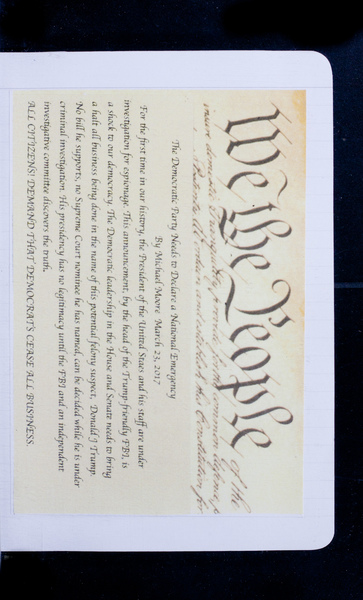 We the People
of the
insure domestic Tranquility, provide for the common defence, p
The Democratic Party Needs to Declare a National Emergency
By Michael Moore March 23, 2017
For the first time in our history, the President of the United Staes and his staff are under
investigation for espionage. This announcement, by the head of the Trump-friendly FBI, is
a shock to our democracy. The Democratic leadership in the House and Senate needs to bring
a halt all business being done in the name of this potential felony suspect, Donald J Trump.
No bill he supports, no Supreme Court nominee he has named, can be decided while he is under
criminal investigation. His presidency has no legitimacy until the FBI and an independent
investigative committee discovers the truth.
ALL CITIZENS! DEMAND THAT DEMOCRATS CEASE ALL BUSINESS.